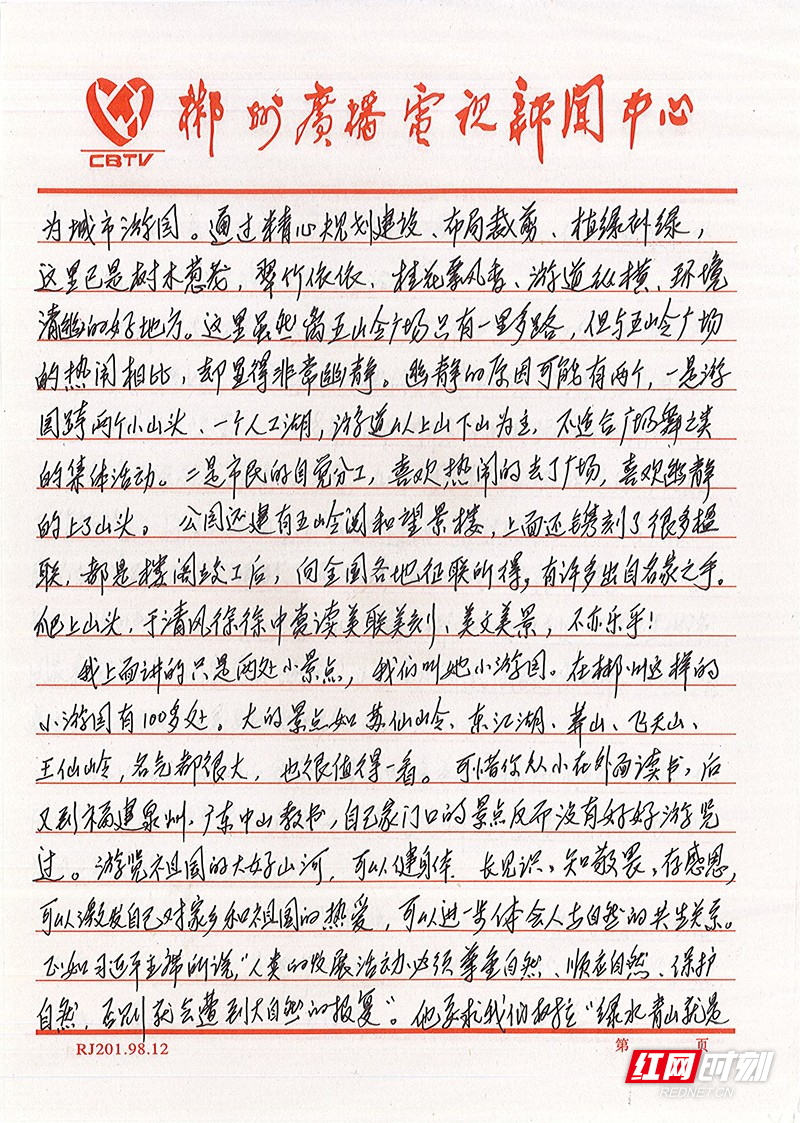 郴州廣播電視新聞中心
CBTV
为城市游园。通过精心规划建设、布局裁剪、植绿补绿，
这里已是树木葱茏，翠竹依依、桂花飘香、游道纵横、环境
清幽的好地方。这里虽然离五岭广场只有一里多路，但与五岭广场
的热闹相比，却显得非常幽静。幽静的原因可能有两个，一是游
园跨两个小山头、一个人工湖，游道以上山下山为主，不适合广场舞之类
的集体活动。二是市民的自觉分工，喜欢热闹的去了广场，喜欢幽静
的上了山头。公园还建有五岭阁和望景楼，上面还镌刻了很多楹
联，都是楼阁竣工后，向全国各地征联所得，有许多出自名家之手。
爬上山头，于清风徐徐中赏读美联美刻，美文美景，不亦乐乎！
我上面讲的只是两处小景点，我们叫她小游园。在郴州这样的
小游园有100多处。大的景点如苏仙岭、东江湖、莽山、飞天山、
王仙岭，名气都很大，也很值得一看。可惜你从小在外面读书，后
又到福建泉州、广东中山教书，自己家门口的景点反而没有好好游览
过。游览祖国的大好山河，可以健身体、长见识、知敬畏、存感恩，
可以激发自己对家乡和祖国的热爱，可以进一步体会人与自然的共生关系。
正如习近平主席所说，“人类的发展活动必须尊重自然、顺应自然、保护
自然，否则就会遭到大自然的报复”。他要求我们树立“绿水青山就是
RJ201.98.12
第 页
红网时刻
REDNET.CN